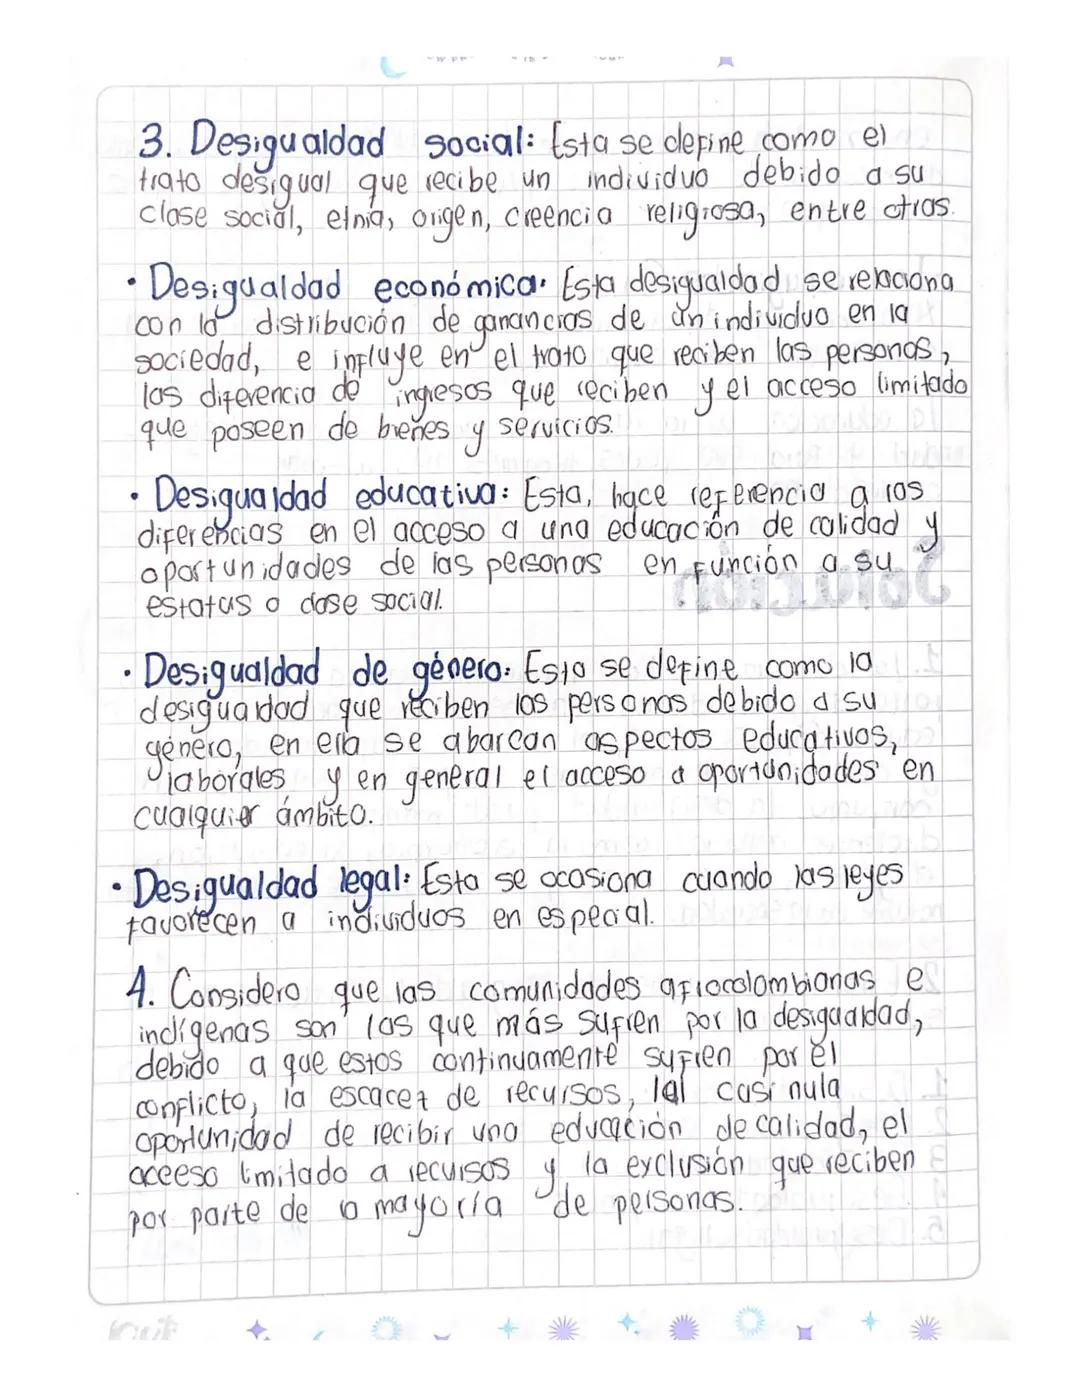 3. Desigualdad social: Esta se define como el
trato desigual que recibe un individuo debido a su
clase social, etnia, origen, creencia religiosa, entre otras.
· Desigualdad económica: Esta desigualdad se relaciona
con la distribución de ganancias de un individuo en la
sociedad, e influye en el trato que reciben las personas,
las diferencia de ingresos que reciben y el acceso limitado
que poseen de bienes y servicios.
· Desigualdad educativa: Esta, hace referencia a las
diferencias en el acceso a una educación de calidad y
oportunidades de las personas en función a su
estatus o clase social.
· Desigualdad de género: Esta se define como la
desigualdad que reciben las personas debido a su
género, en ella se abarcan aspectos educativos,
laborales y en general el acceso a oportunidades en
cualquier ámbito.
· Desigualdad legal: Esta se ocasiona cuando las leyes
favorecen a individuos en especial.
4. Considero que las comunidades afrocolombianas e
indígenas son las que más sufren por la desigualdad,
debido a que estos continuamente sufren por el
conflicto, la escacez de recursos, la casi nula
oportunidad de recibir una educación de calidad, el
aceeso limitado a recursos y la exclusión que reciben
por parte de la mayoría de personas.